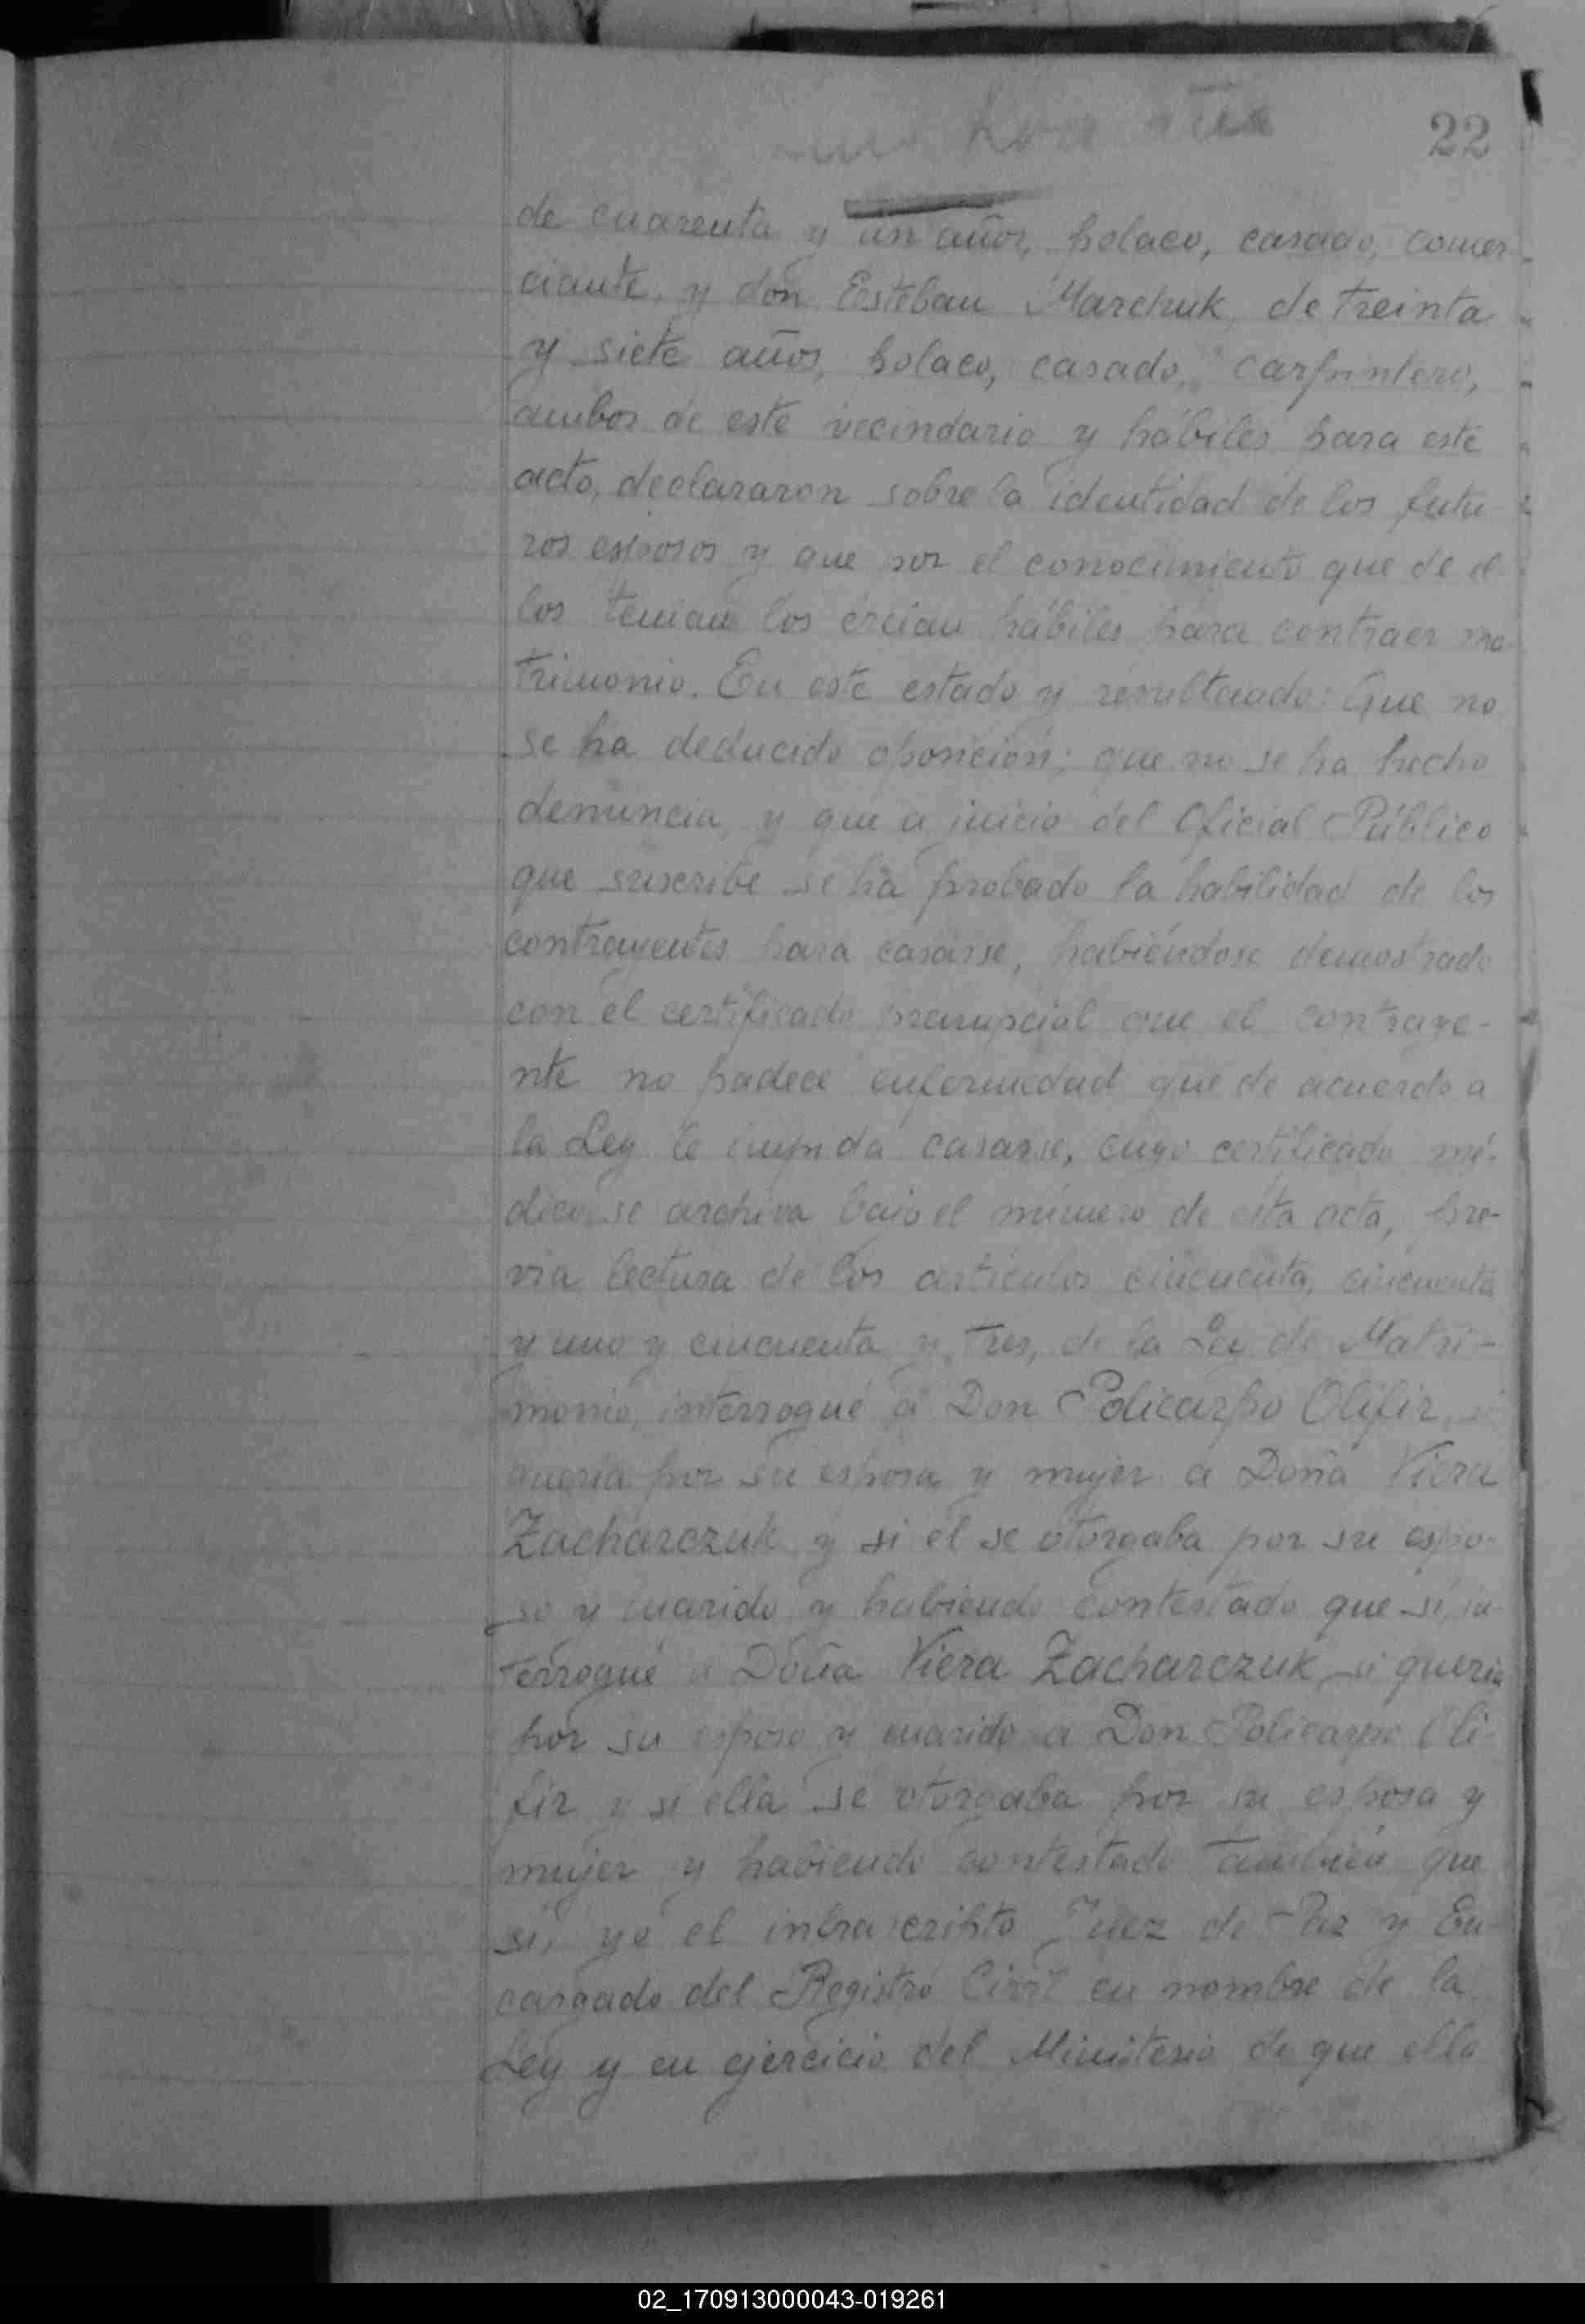 22
de cuarenta y un años, polaco, casado, comer-
ciante, y don Esteban Marchuk, de treinta
y siete años, polaco, casado, carpintero,
ambos de este vecindario y hábiles para este
acto, declararon sobre la identidad de los futu-
ros esposos y que por el conocimiento que de el-
los tenian los creian hábiles para contraer ma-
trimonio. En este estado y resultando: Que no
se ha deducido oposición; que no se ha hecho
denuncia, y que a juicio del Oficial Público
que suscribe se ha probado la habilidad de los
contrayentes para casarse, habiéndose demostrado
con el certificado prenupcial que el contraye-
nte no padece enfermedad que de acuerdo a
la Ley le impida casarse, cuyo certificado mé-
dico se archiva bajo el número de esta acta, pre-
via lectura de los artículos cincuenta, cincuenta
y uno y cincuenta y tres, de la Ley de Matri-
monio, interrogué a Don Policarpo Olifir, si
queria por su esposa y mujer a Doña Viera
Zacharczuk y si él se otorgaba por su espo-
so y marido y habiendo contestado que sí, in-
terrogué a Doña Viera Zacharczuk si queria
por su esposo y marido a Don Policarpo Oli-
fir y si ella se otorgaba por su esposa y
mujer y habiendo contestado también que
sí, yo el infrascripto Juez de Paz y En-
cargado del Registro Civil en nombre de la
Ley y en ejercicio del Ministerio de que ella
02_170913000043-019261